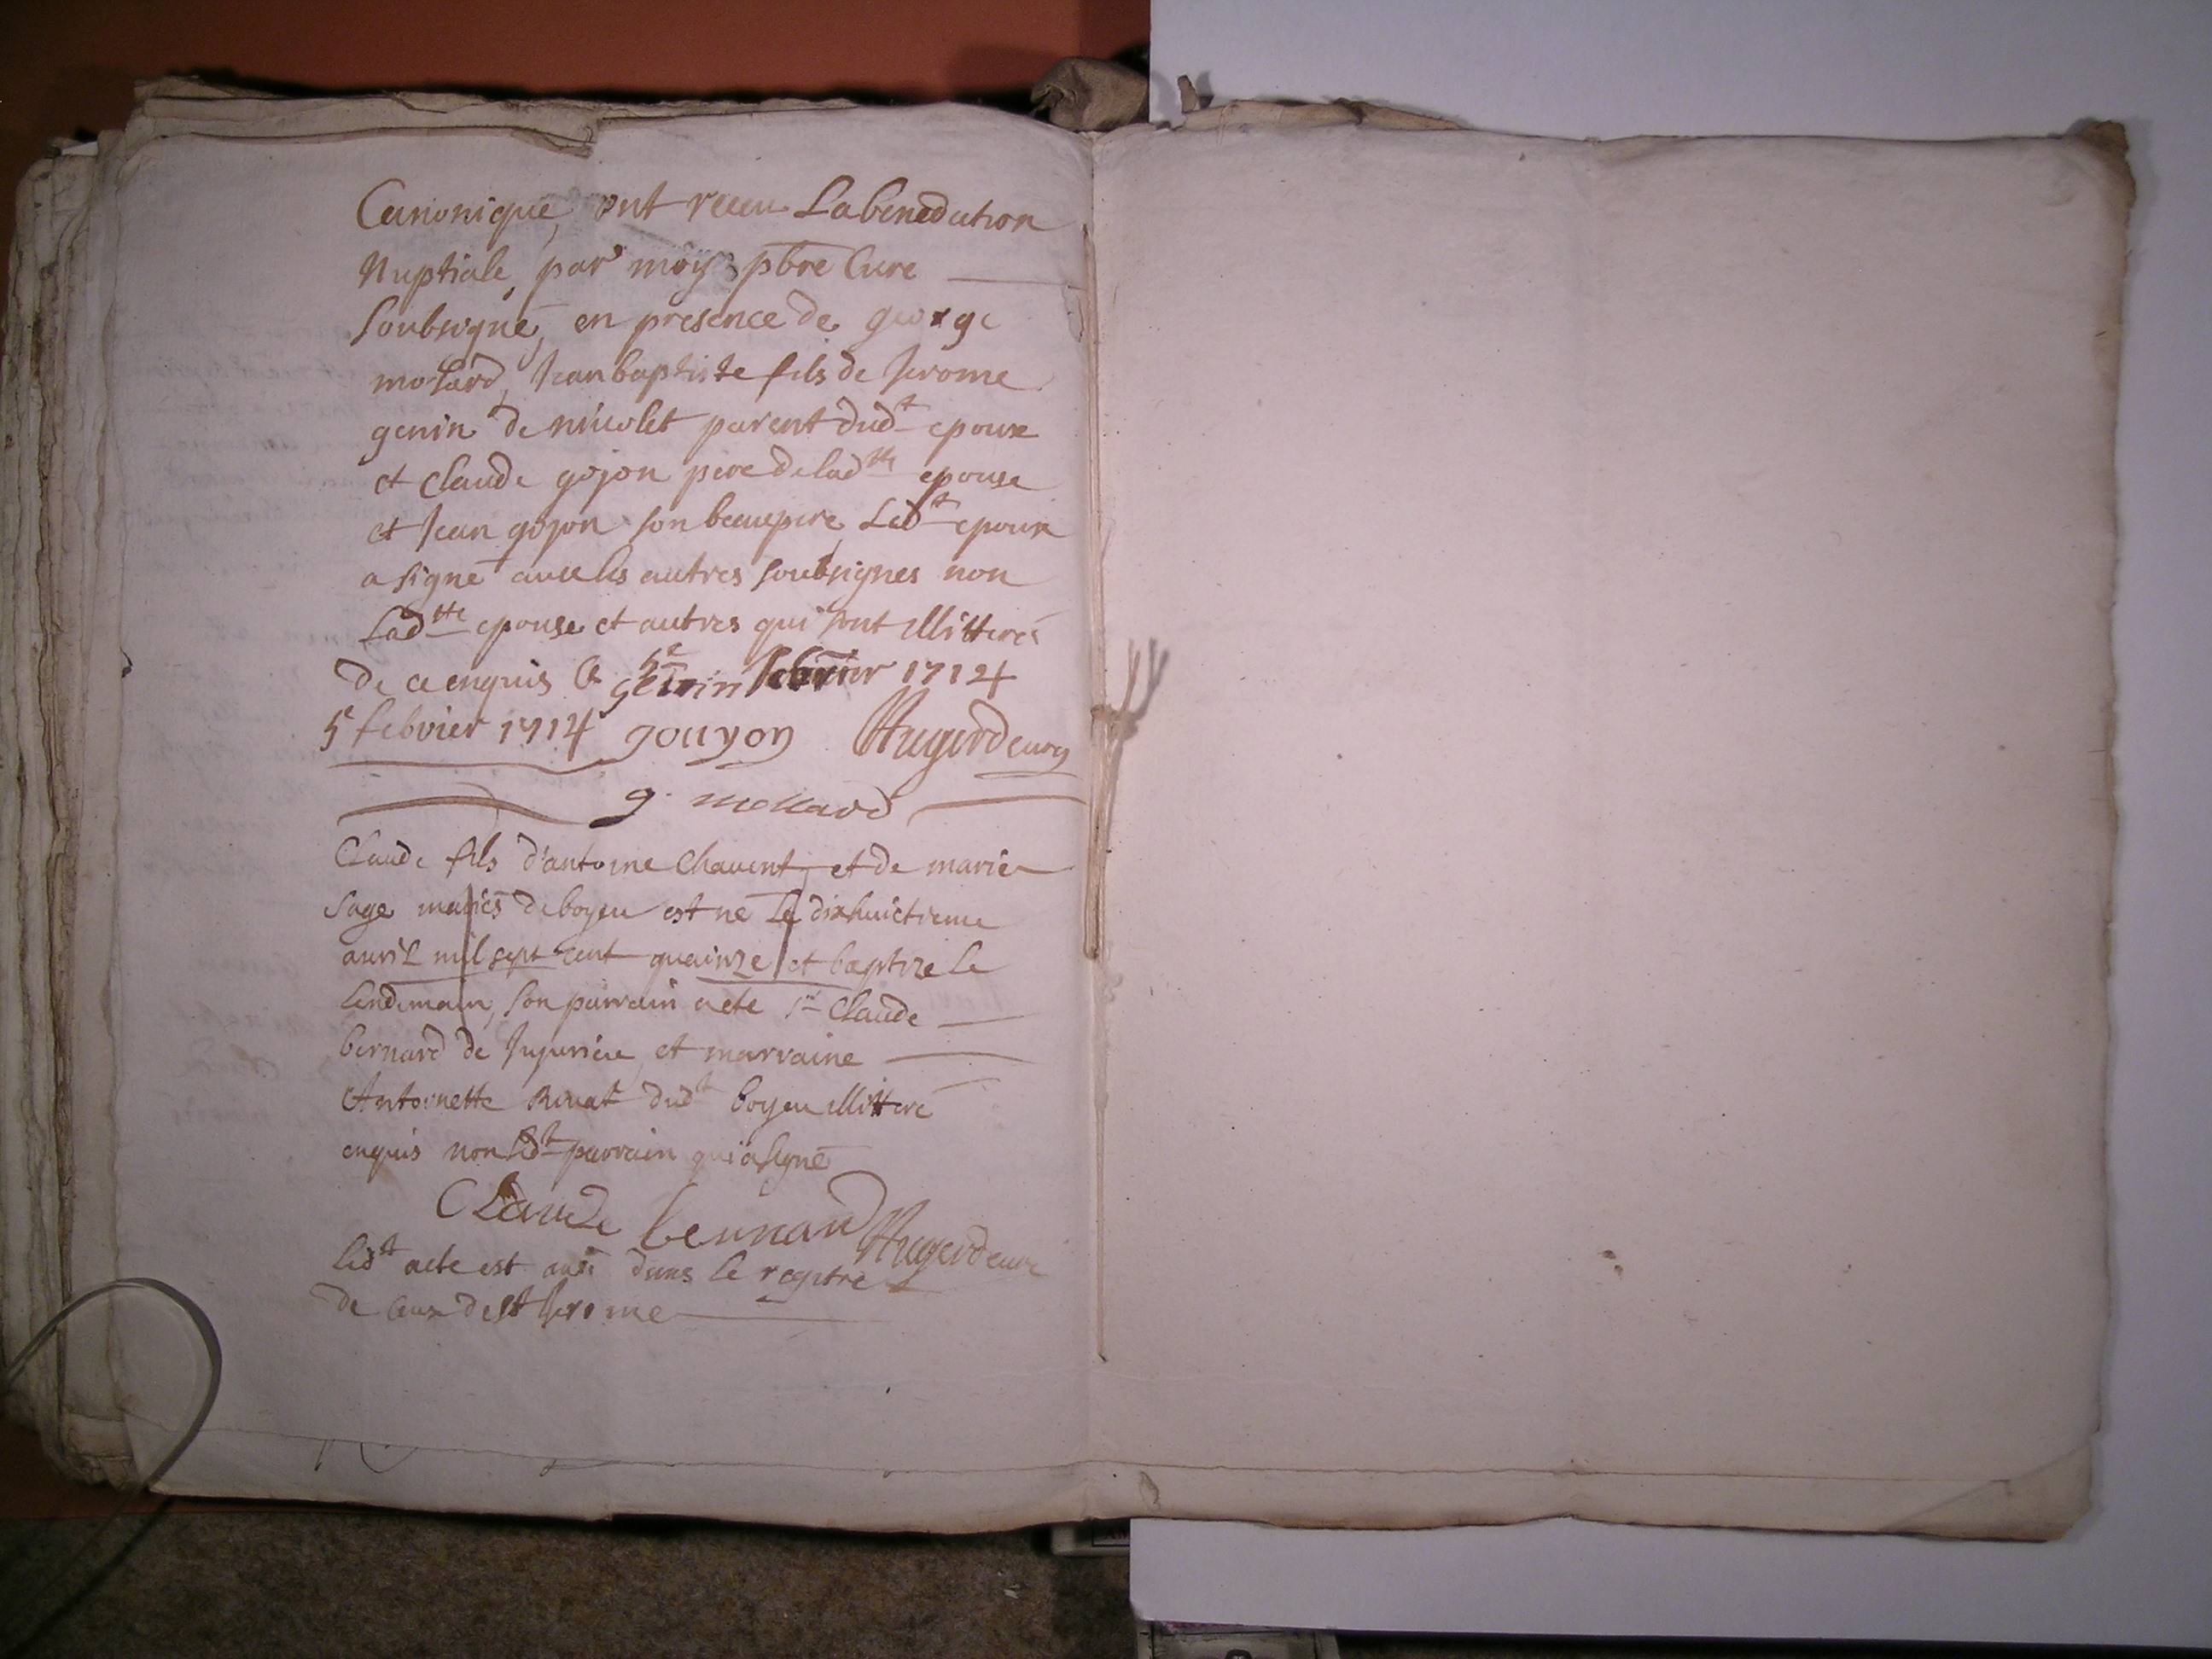 Canonique, ont receu La benediction
Nuptiale, par moy pbre Cure
soubsigné, en presence de george
molard, Jean baptiste fils de Jerome
genin de nicolet parent dud^t epoux
et Claude gojon pere de lad^tte epouse
et Jean gojon son beaupere, Led^t epoux
a signé avec les autres soubsignes non
Lad^tte epouse et autres qui sont illitterés
de ce enquis Ce 5^e febvrier 1714
genin
5^e febvrier 1714 gouyon Augerd cure
g. mollard
Claude fils d'antoine Chavent et de marie
Sage mariés de boyeu est né Le dixhuictieme
avril mil sept cent quainze et baptize le
Lendemain, son parrain a ete s^r Claude
bernard de Jujurieu, et marraine
Antoinette Ruvat dud^t boyeu illitteré
enquis non led^t parrain qui a signé
CLaude bernard Augerd cure
led^t acte est ausi dans le regitre
de ceux de st Jerome